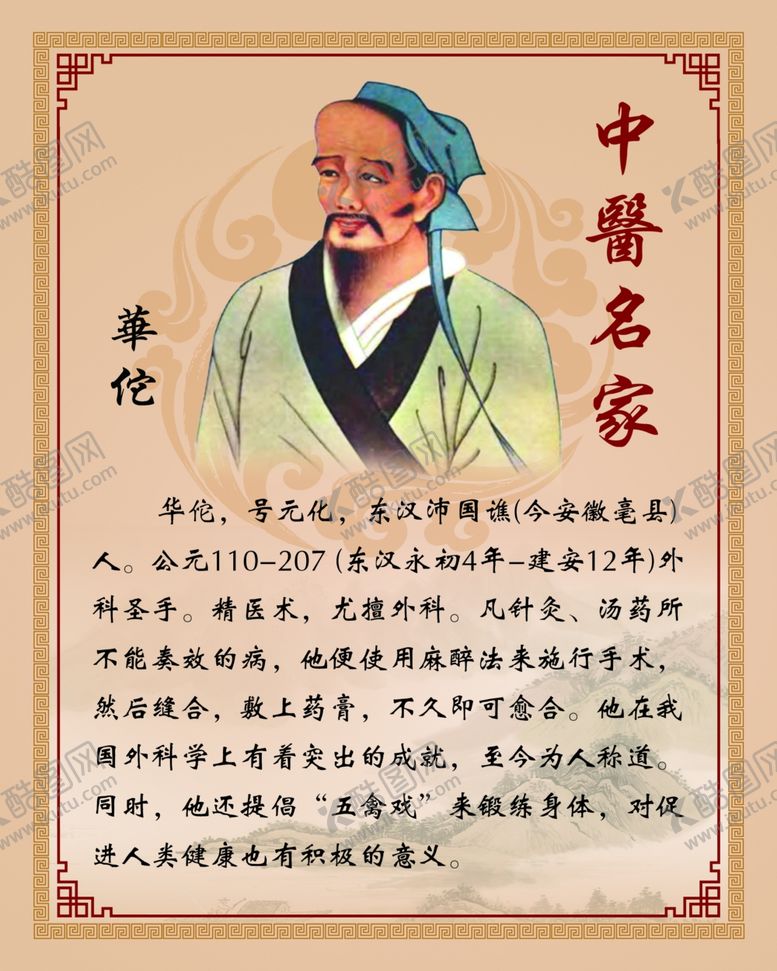 中醫名家
華佗
华佗，号元化，东汉沛国谯(今安徽亳县)
人。公元110-207 (东汉永初4年-建安12年)外
科圣手。精医术，尤擅外科。凡针灸、汤药所
不能奏效的病，他便使用麻醉法来施行手术，
然后缝合，敷上药膏，不久即可愈合。他在我
国外科学上有着突出的成就，至今为人称道。
同时，他还提倡“五禽戏”来锻练身体，对促
进人类健康也有积极的意义。
酷图网
www.ikutu.com